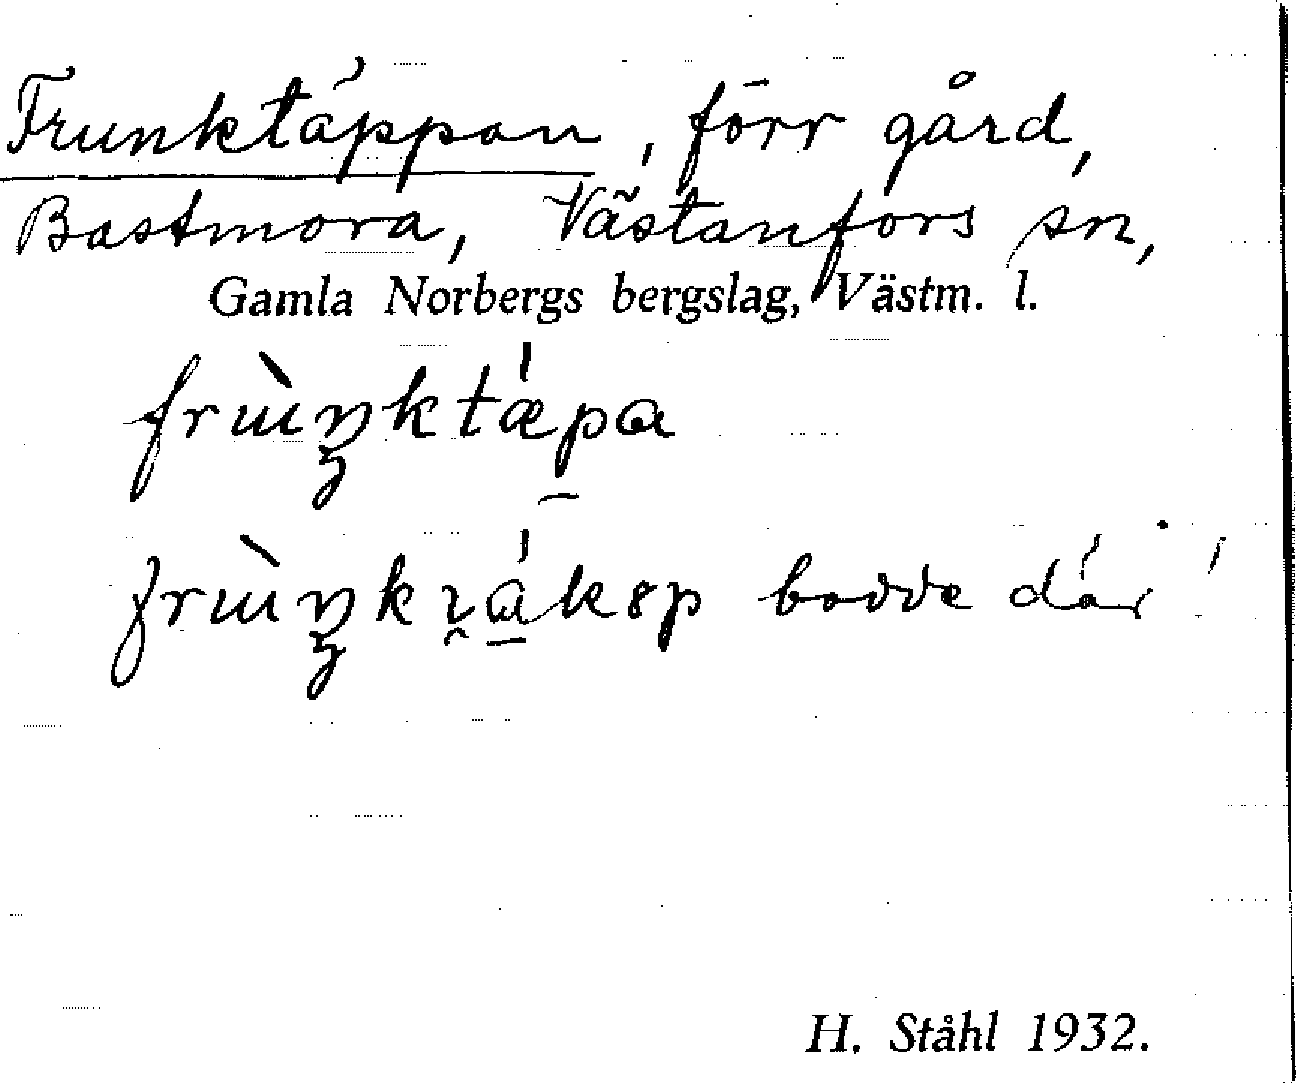 Frunktäppan, förr gård,
Bastmora, Västanfors sn,
Gamla Norbergs bergslag, Västm. l.
bodde där
H. Ståhl 1932.